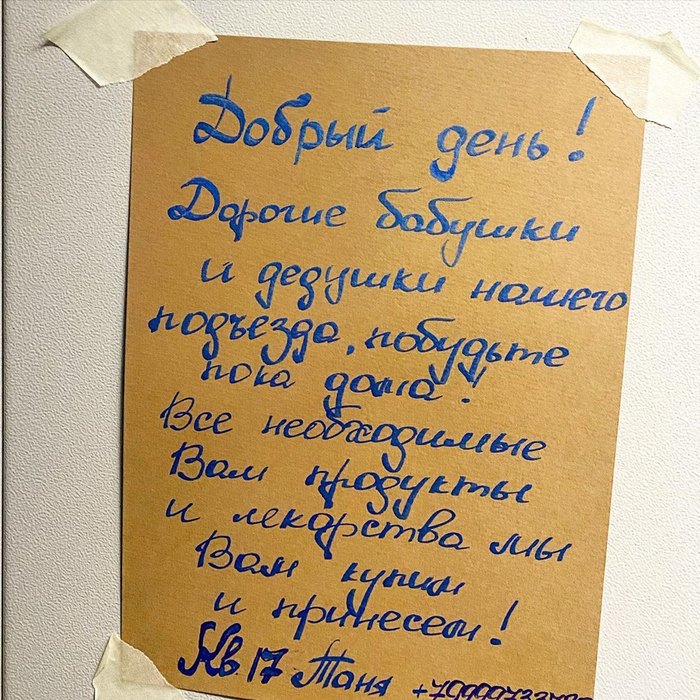 Добрый день!
Дорогие бабушки
и дедушки нашего
подъезда, побудьте
пока дома!
Все необходимые
Вам продукты
и лекарства мы
Вам купим
и принесем!
Кв. 17 Таня